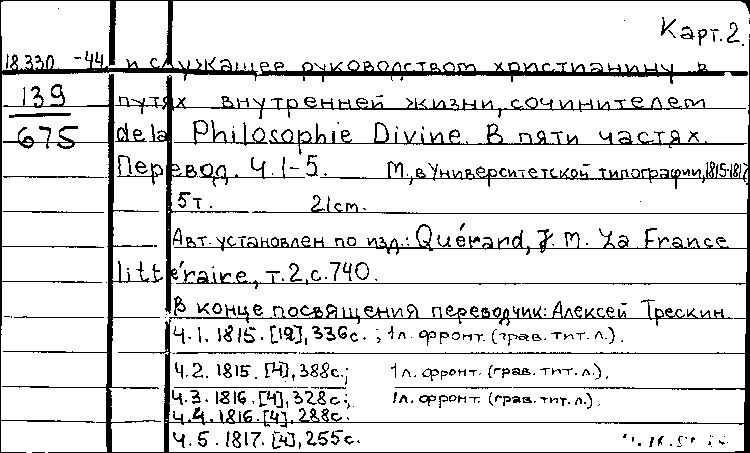 Карт. 2.
18.330 -44 и служащее руководством христианину в
139 путях внутренней жизни, сочинителем
675 de la Philosophie Divine. В пяти частях.
Перевод. Ч. 1-5. М., в Университетской типографии, 1815-1817
5т. 21cm.
Авт. установлен по изд.: Quérard, J. M. La France
littéraire, т. 2, с. 740.
В конце посвящения переводчик: Алексей Трескин.
Ч. 1. 1815. [12], 336с.; 1л. фронт. (грав. тит. л.).
Ч. 2. 1815. [4], 388с.; 1л. фронт. (грав. тит. л.).
Ч. 3. 1816. [4], 328с.; 1л. фронт. (грав. тит. л.).
Ч. 4. 1816. [4], 288с.
Ч. 5. 1817. [4], 255с.